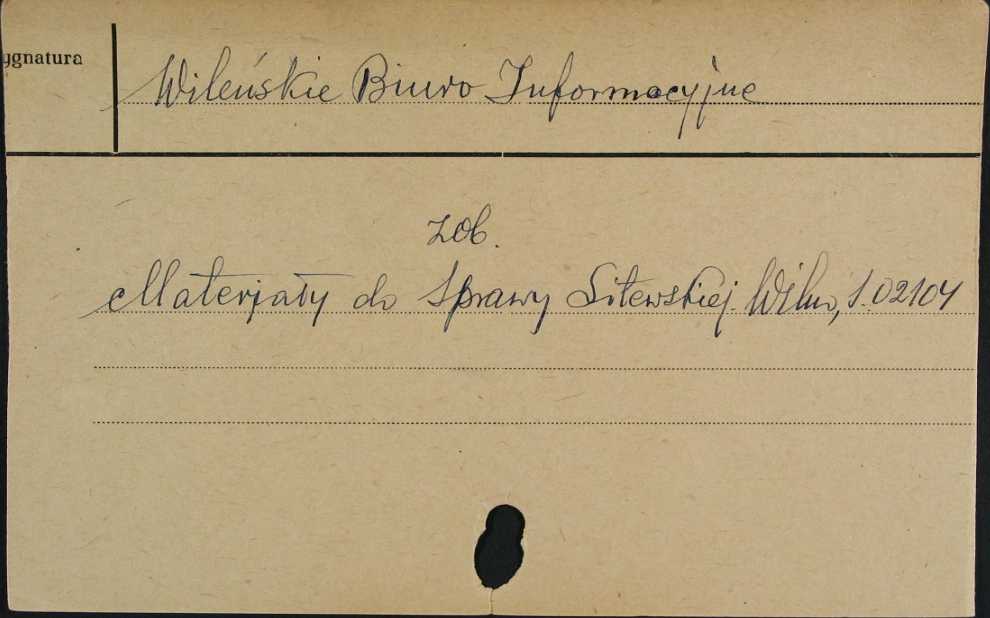 ygnatura
Wileńskie Biuro Informacyjne
zob.
Materjały do Sprawy Litewskiej. Wilno, S.02104